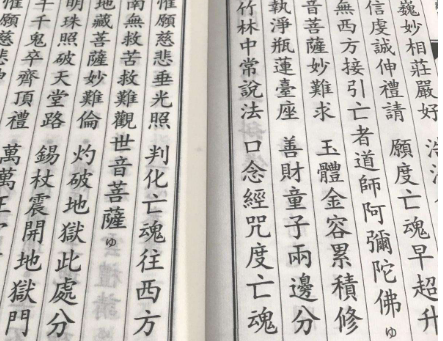 巍妙相莊嚴好
信虔誠伸禮請 願度亡魂早超升
無西方接引亡者道師阿彌陀佛ゅ
音菩薩妙難求 玉體金容累積修
執淨瓶蓮臺座 善財童子兩邊分
竹林中常說法 口念經咒度亡魂
惟願慈悲垂光照 判化亡魂往西方
南無救苦救難觀世音菩薩ゅ
地藏菩薩妙難倫 灼破地獄此處分
明珠照破天堂路 錫杖震開地獄門
千千鬼卒齊頂禮 萬萬王
惟願慈悲